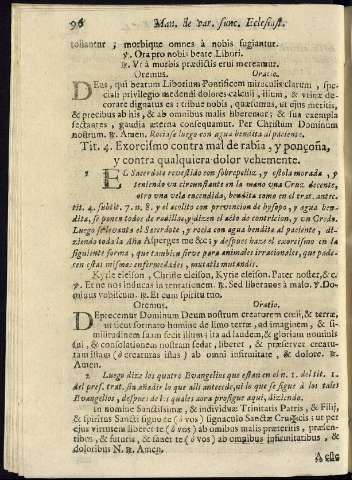 96 Man. de var. func. Eclesiast.
tollantur ; morbique omnes à nobis fugiantur.
℣. Ora pro nobis beate Libori.
℟. Vt à morbis prædictis erui mereamur.
Oremus. Oratio.
DEus, qui beatum Liborium Pontificem miraculis clarum, spe-
ciali privilegio medendi dolores calculi, ilium, & vrinæ de-
corare dignatus es : tribue nobis, quæsumus, vt ejus meritis,
& precibus ab his, & ab omnibus malis liberemur; & sua exempla
sectantes, gaudia æterna consequamur. Per Christum Dominum
nostrum. ℟. Amen. Rociase luego con agua bendita al paciente.
Tit. 4. Exorcismo contra mal de rabia, y ponçoña,
y contra qualquiera dolor vehemente.
1 EL Sacerdote revestido con sobrepelliz, y estola morada, y
teniendo vn circunstante en la mano vna Cruz decente,
otro vna vela encendida, bendita como en el trat. antec.
tit. 4. subtit. 7. n. 8. y el acolito con prevencion de hysopo, y agua ben-
dita, se ponen todos de rodillas, y dizen el acto de contricion, y vn Credo.
Luego se levanta el Sacerdote, y rocia con agua bendita al paciente, di-
ziendo toda la Aña Asperges me &c; y despues haze el exorcismo en la
siguiente forma, que tambien sirve para animales irracionales, que pade-
cen estas mismas enfermedades, mutatis mutandis.
Kyrie eleison, Christe eleison, Kyrie eleison. Pater noster, & c.
℣. Et ne nos inducas in tentationem. ℟. Sed libera nos à malo. ℣. Do-
minus vobiscum. ℟. Et cum spiritu tuo.
Oremus. Oratio.
DEprecemur Dominum Deum nostrum creatorem cœli, & terræ,
vt sicut formavit hominem de limo terræ, ad imaginem, & si-
militudinem suam fecit illum; ita ad laudem, & gloriam nominis
sui, & consolationem nostram sedat, liberet, & præservet creatu-
ram istam (ò creaturas istas) ab omni infirmitate, & dolore. ℟.
Amen.
2 Luego dize los quatro Evangelios que estan en el n. 1. del tit. 1.
del pres. trat. sin añadir lo que alli antecede, ni lo que se sigue à los tales
Evangelios, despues de los quales aora prosigue aqui, diziendo.
In nomine Sanctissimæ, & individuæ Trinitatis Patris, & Filij,
& Spiritus Sancti signo te (ò vos) signaculo Sanctæ Crucis: vt per
ejus virtutem liberet te (ò vos) ab omnibus malis præteritis, præsen-
tibus, & futuris, & sanet te (ò vos) ab omnibus infirmitatibus, &
doloribus N. ℟. Amen.
A este